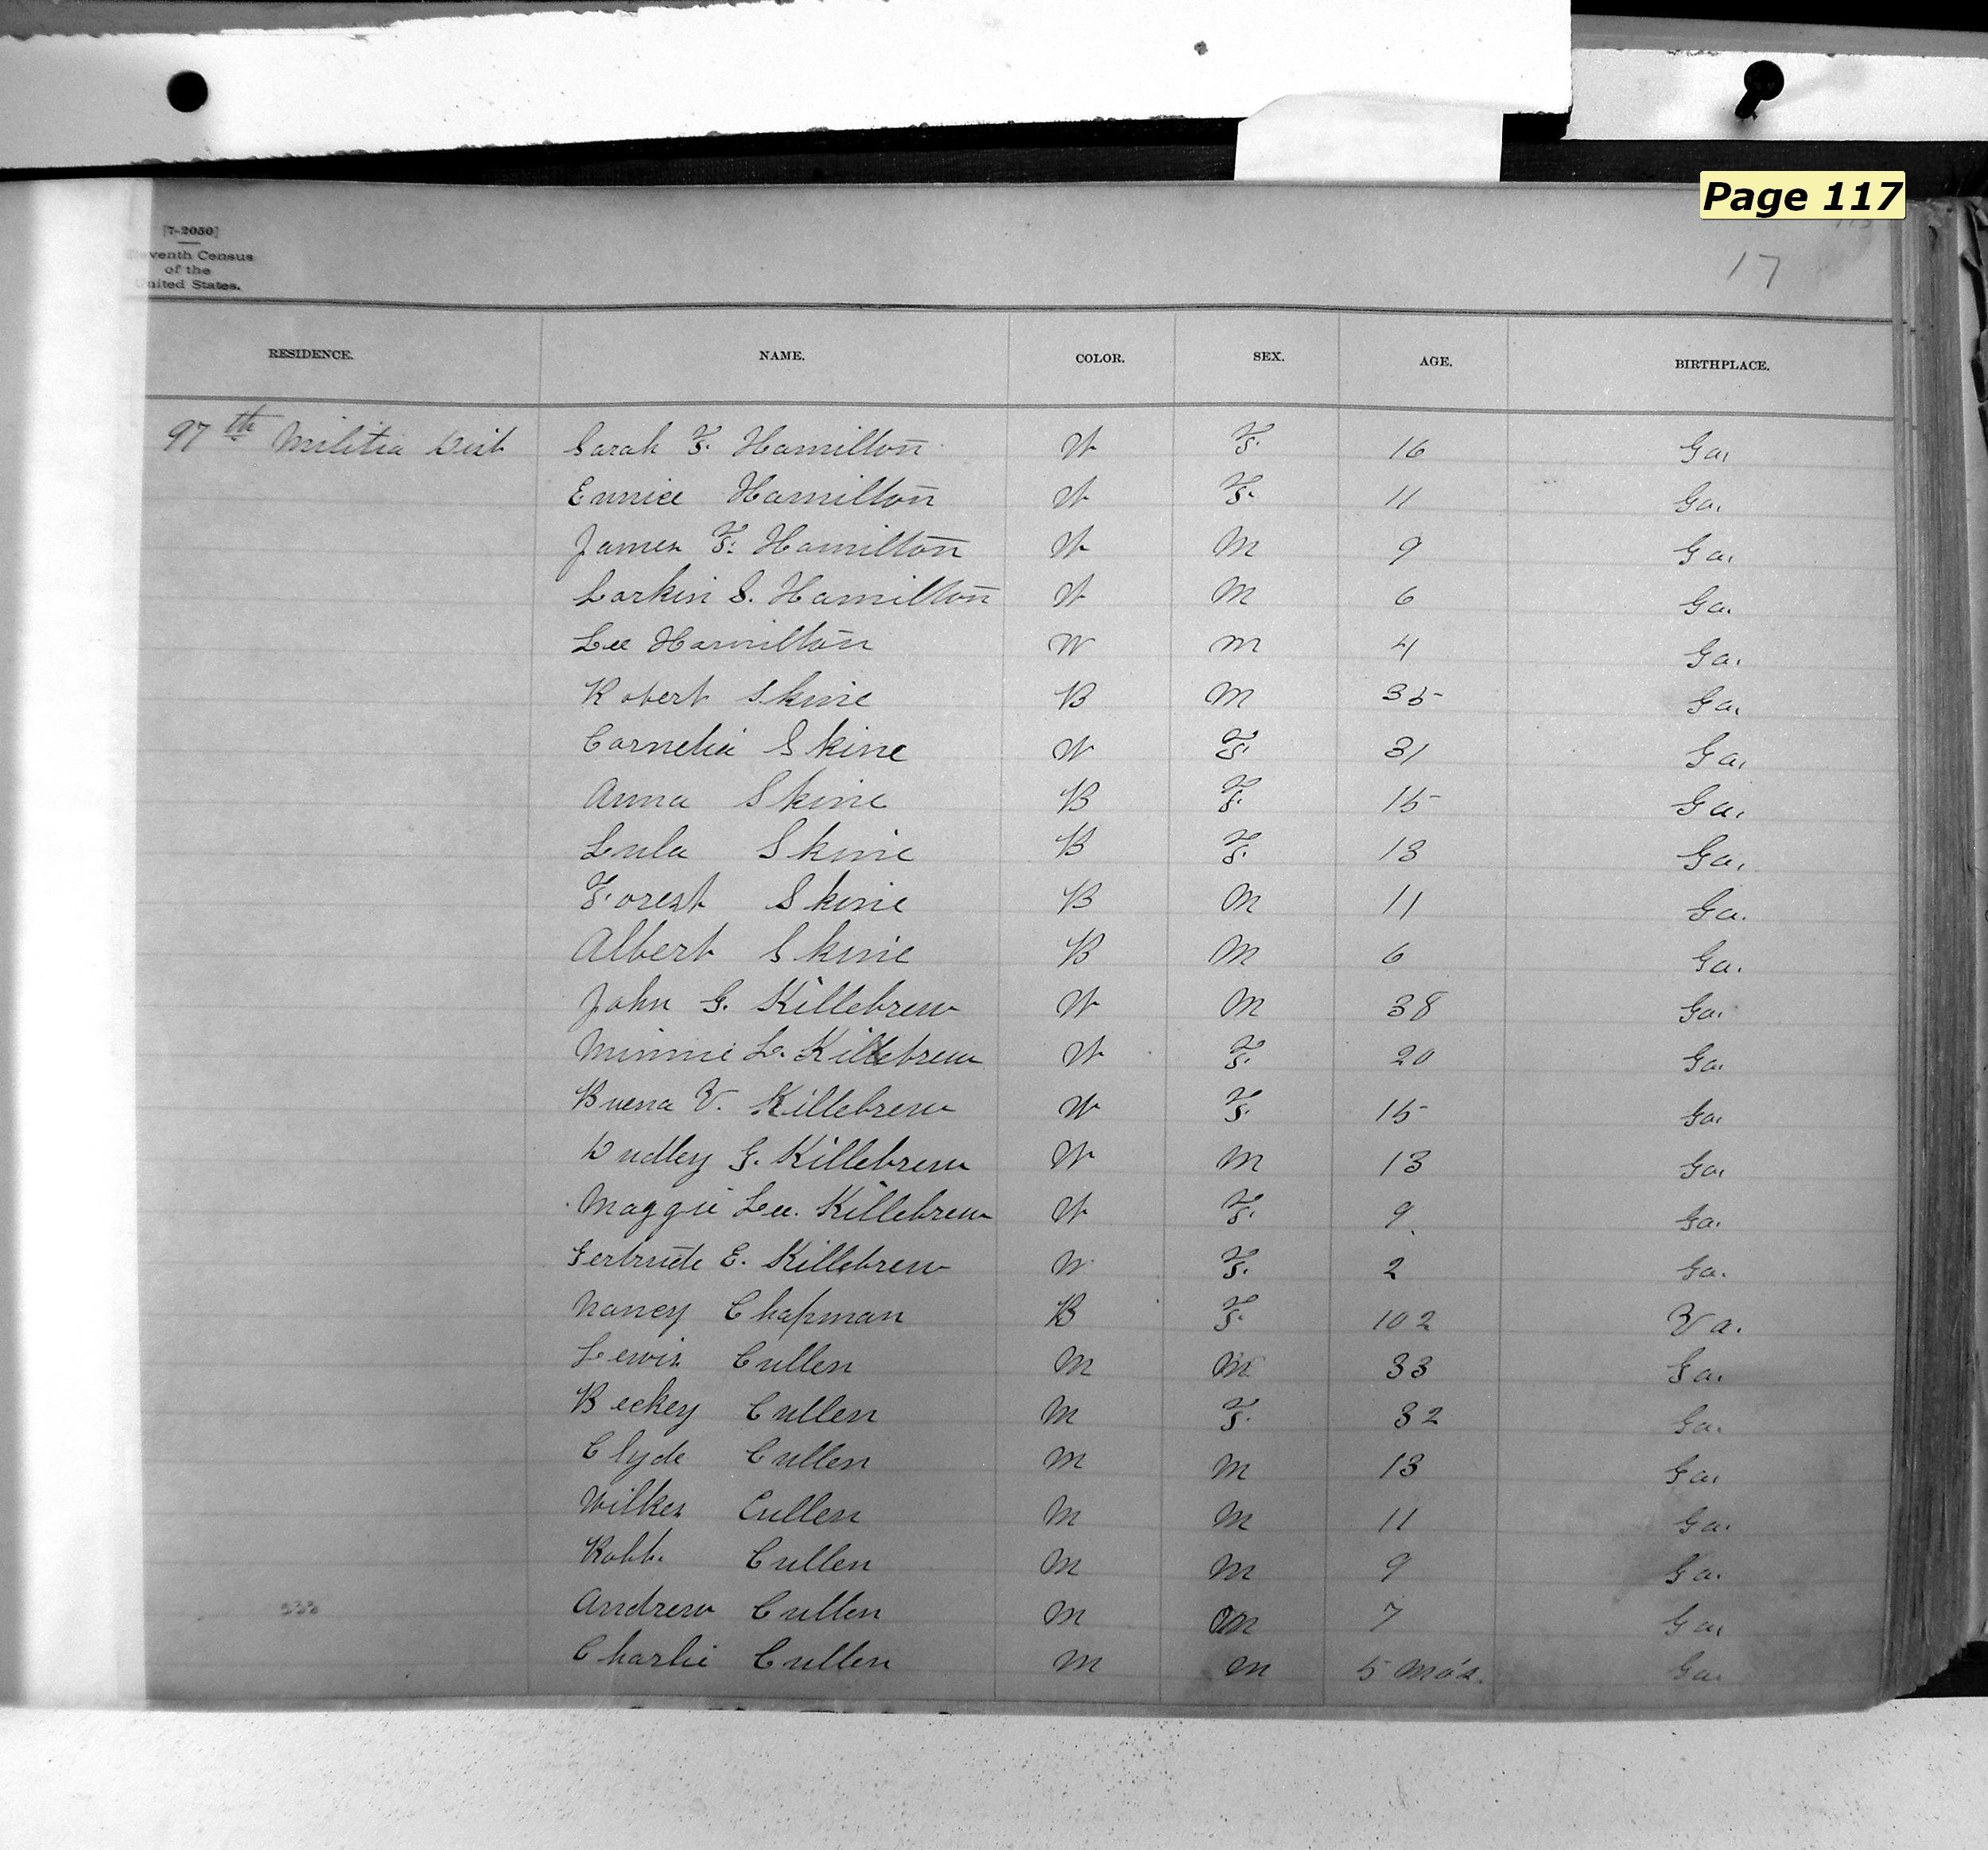 Page 117
[7-2050]
17
eventh Census
of the
United States.
RESIDENCE. NAME. COLOR. SEX. AGE. BIRTHPLACE.
97th Militia Dist Sarah F. Hamilton W F. 16 Ga.
Eunice Hamilton W F. 11 Ga.
James F. Hamilton W M 9 Ga.
Larkin S. Hamilton W M 6 Ga.
Lee Hamilton W M 4 Ga.
Robert Skine B M 35 Ga.
Cornelia Skine W F. 31 Ga.
Anna Skine B F. 15 Ga.
Lula Skine B F. 13 Ga.
Forest Skine B M 11 Ga.
Albert Skine B M 6 Ga.
John G. Killebrew W M 38 Ga.
Minnie L. Killebrew W F. 20 Ga.
Buena V. Killebrew W F. 15 Ga.
Dudley G. Killebrew W M 13 Ga.
Maggie Lee. Killebrew W F. 9 Ga.
Gertrude E. Killebrew W F. 2 Ga.
Nancy Chapman B F. 102 Va.
Lewis Cullen M M 33 Ga.
Beckey Cullen M F. 32 Ga.
Clyde Cullen M M 13 Ga.
Wilkes Cullen M M 11 Ga.
Robb. Cullen M M 9 Ga.
Andrew Cullen M M 7 Ga.
Charlie Cullen M M 5 Mo's. Ga.